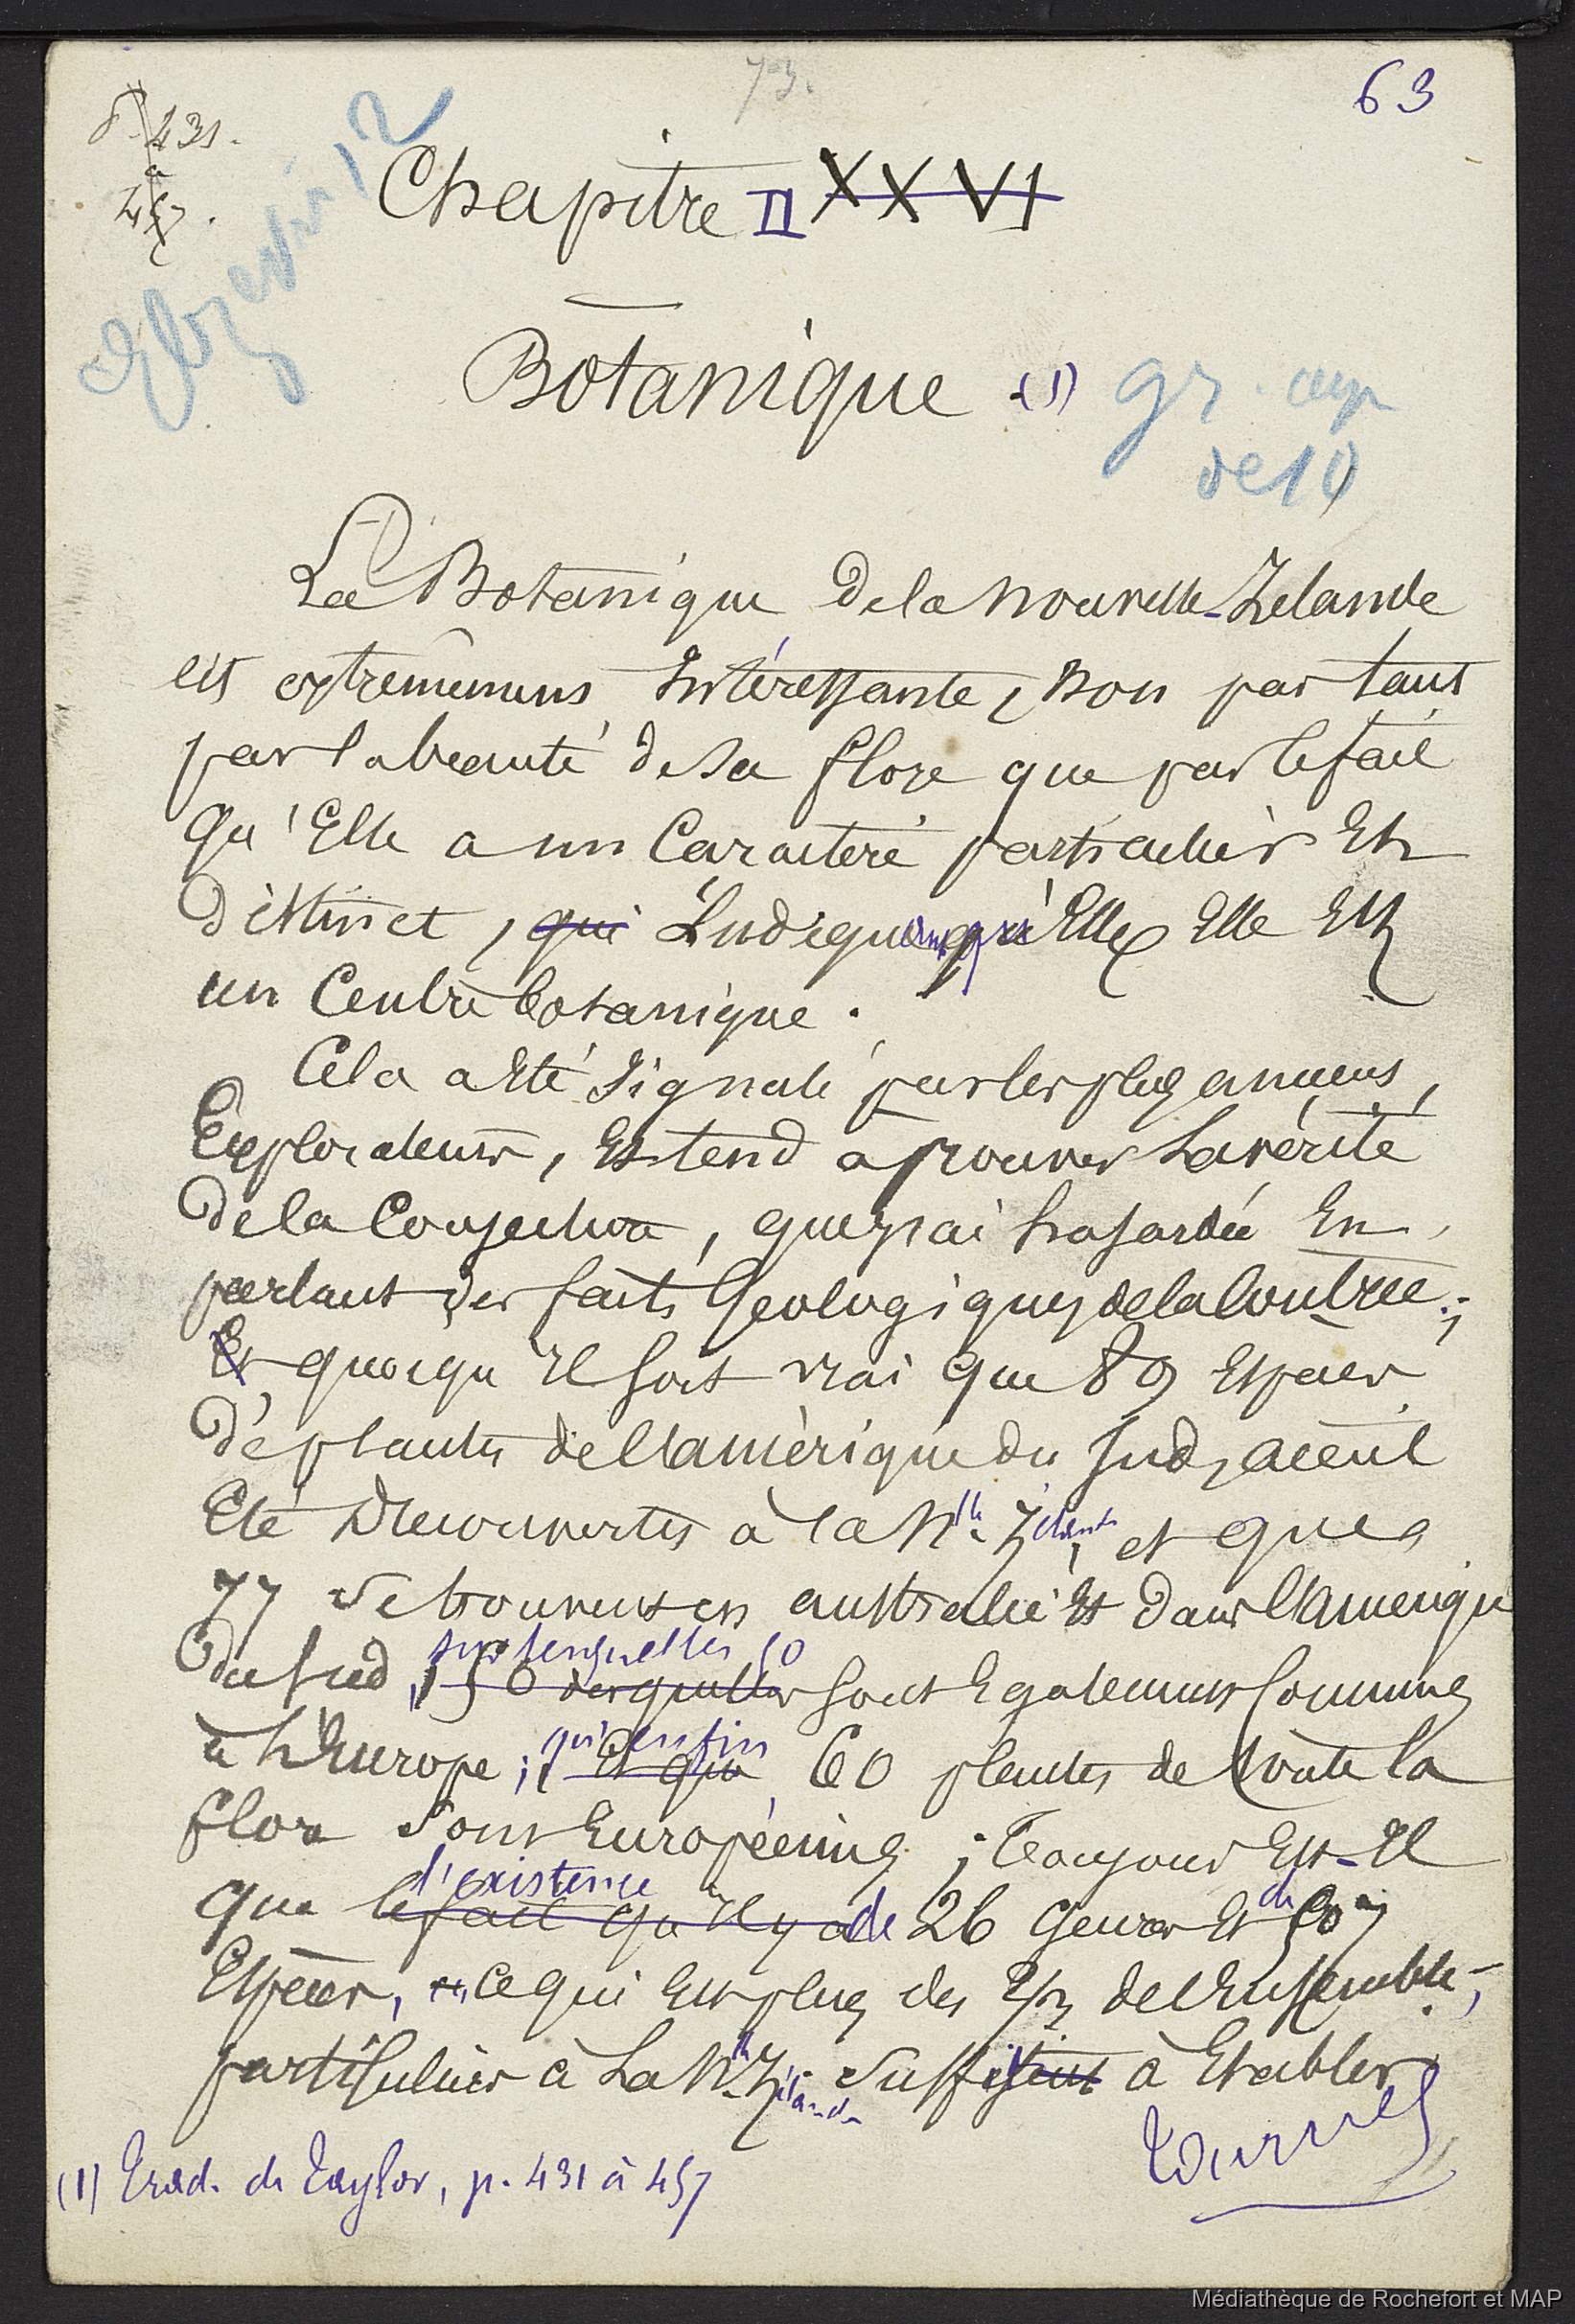 73.
63
p. 431.
à
457.
Elzevir 12
Chapitre II XXVI
Botanique (1)
gr.
de 10
La Botanique de la Nouvelle-Zelande
est extremement Intéressante, Non pas tant
par la beauté de sa flore que par le fait
qu'Elle a un Caractère particulier Et
distinct, qui Indique qu'Elle Elle Est
un Centre botanique.
Cela a Eté Signalé par les plus anciens
Explorateurs, Et tend à prouver La vérité
de la Conjecture, que j'ai hasardée En
parlant des faits Géologiques de la Contrée ;
Et quoiqu'Il soit vrai que 89 Espèces
de plantes de l'Amérique du Sud, aient
Eté Découvertes à la Nlle Zélande, et que
77 se trouvent en Australie Et dans l'Amerique
du Sud, sur lesquelles 50
50 desquelles sont Egalement Communes
à l'Europe ; qu'enfin
Et que 60 plantes de toute la
flore sont Européennes ; Toujours Est-Il
que l'existence
le fait qu'Il y a de 26 Genres Et de 507
Espèces, ce qui Est plus des 2/3 de l'Ensemble,
particulières à La Nlle Zélande suffit à Etablir
Tournez
(1) Trad. de Taylor, p. 431 à 457
Médiathèque de Rochefort et MAP